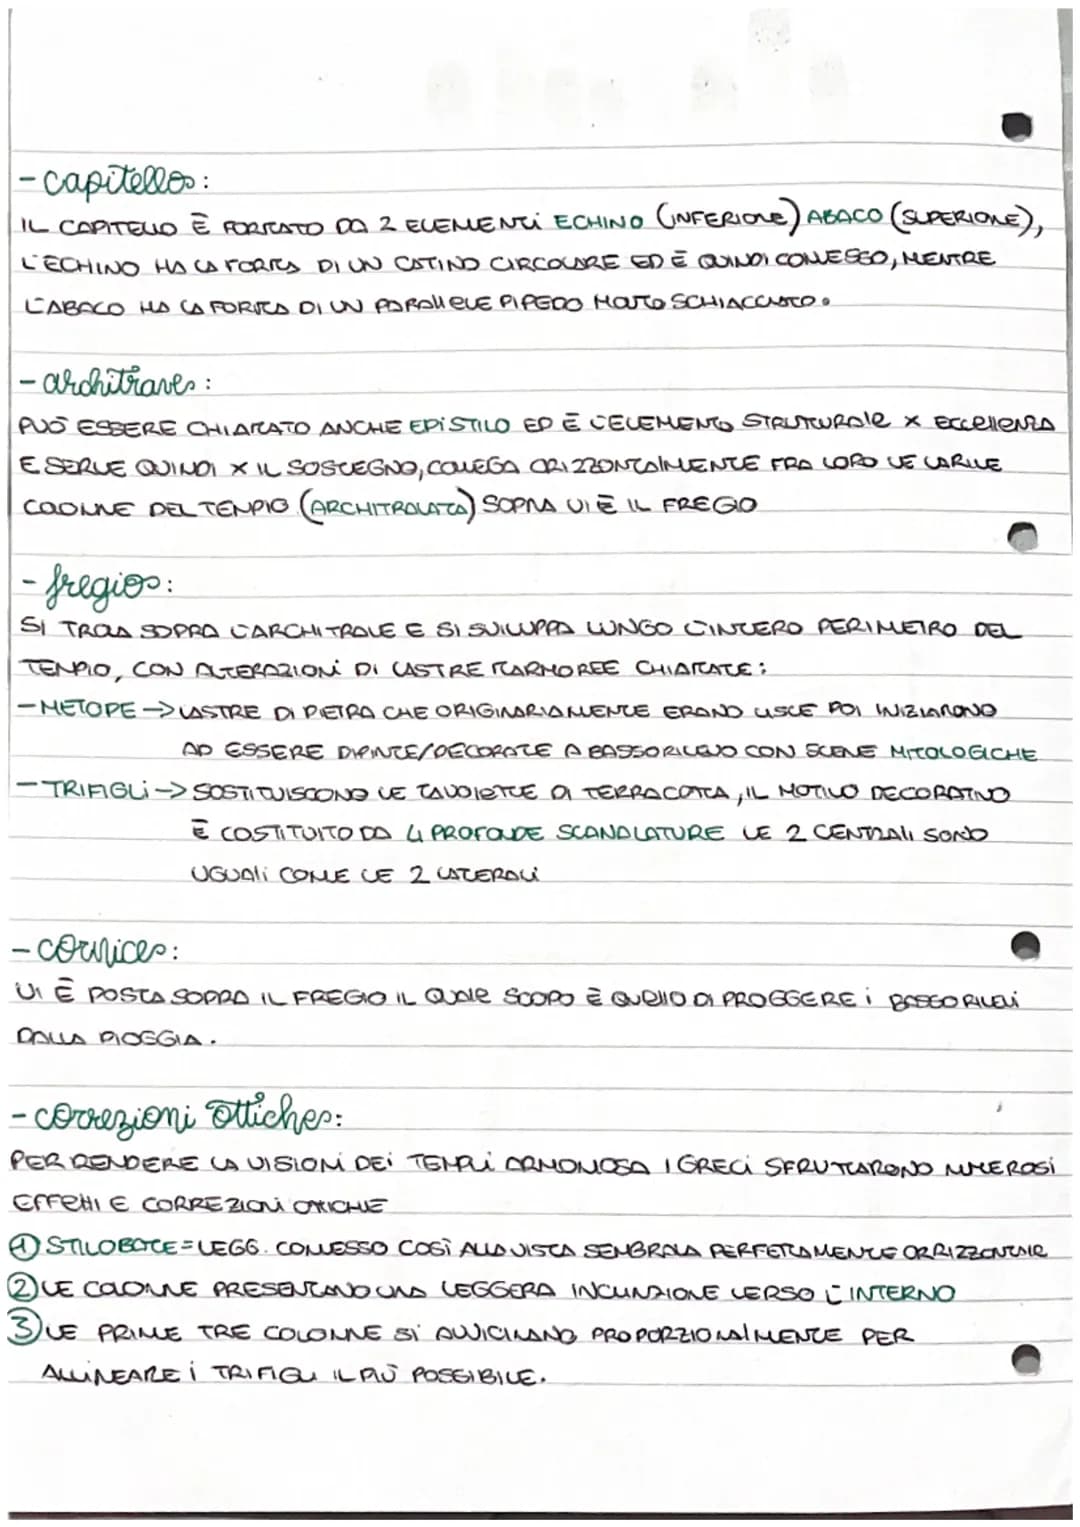 - capitello:
IL CAPITELLO È FORMATO DA 2 ELEMENTI ECHINO (INFERIORE) ABACO (SUPERIORE),
L'ECHINO HA LA FORMA DI UN CATINO CIRCOLARE ED È QUINDI CONVESSO, MENTRE
L'ABACO HA LA FORMA DI UN PARALLELEPIPEDO MOLTO SCHIACCIATO.
- architrave:
PUÒ ESSERE CHIAMATO ANCHE EPISTILO ED È L'ELEMENTO STRUTURALE X ECCELLENZA
E SERVE QUINDI X IL SOSTEGNO, COLLEGA ORIZZONTALMENTE FRA LORO LE VARIE
COLONNE DEL TEMPIO (ARCHITRAVATA) SOPRA VI È IL FREGIO
- fregio:
SI TROVA SOPRA L'ARCHITRAVE E SI SVILUPPA LUNGO L'INTERO PERIMETRO DEL
TEMPIO, CON ALTERAZIONI DI LASTRE MARMOREE CHIAMATE:
- METOPE → LASTRE DI PIETRA CHE ORIGINARIAMENTE ERANO LISCE POI INIZIARONO
AD ESSERE DIPINTE/DECORATE A BASSORILIEVO CON SCENE MITOLOGICHE
- TRIFIGLI → SOSTITUISCONO LE TAVOLETTE DI TERRACOTTA, IL MOTIVO DECORATIVO
È COSTITUITO DA 4 PROFONDE SCANALATURE LE 2 CENTRALI SONO
UGUALI COME LE 2 LATERALI
- cornice:
VI È POSTA SOPRA IL FREGIO IL QUALE SCOPO È QUELLO DI PROGGERE i BASSORILIEVI
DALLA PIOGGIA.
- correzioni ottiche:
PER RENDERE LA VISIONI DEI TEMPLI ARMONIOSA I GRECI SFRUTTARONO NUMEROSI
EFFETTI E CORREZIONI OTTICHE
① STILOBATE = LEGG. CONVESSO COSÌ ALLA VISTA SEMBRAVA PERFETTAMENTE ORRIZZONTALE
② LE COLONNE PRESENTANO UNA LEGGERA INCLINAZIONE VERSO L'INTERNO
③ LE PRIME TRE COLONNE SI AVVICINANO PROPORZIONALMENTE PER
ALLINEARE i TRIFIGLI IL PIÙ POSSIBILE.